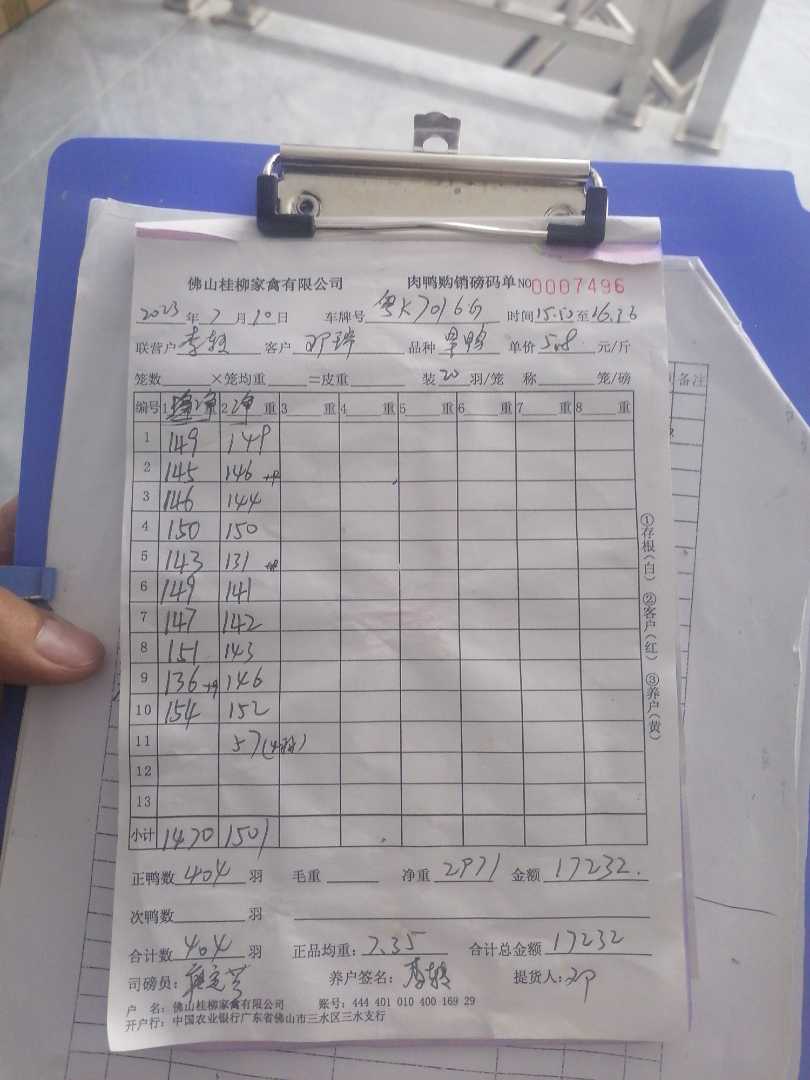 佛山桂柳家禽有限公司 肉鸭购销磅码单 NO 0007496
2023 年 7 月 10 日 车牌号 时间 至
联营户 客户 邓 品种 单价 5.8 元/斤
笼数 ×笼均重 =皮重 装 20 羽/笼 称 笼/磅
编号 1 净 2 净 重 3 重 4 重 5 重 6 重 7 重 8 重
1 149 149
2 145 146
3 146 144
4 150 150
5 143 131
6 149 141
7 147 142
8 151 143
9 136 146
10 154 152
11 57 (4羽)
12
13
小计 1470 1501
正鸭数 404 羽 毛重 净重 2971 金额 17232.
次鸭数 羽
合计数 404 羽 正品均重: 7.35 合计总金额 17232
司磅员: 养户签名: 提货人: 邓
户 名: 佛山桂柳家禽有限公司 账号: 444 401 010 400 169 29
开户行: 中国农业银行广东省佛山市三水区三水支行
①存根(白) ②客户(红) ③养户(黄)
备注